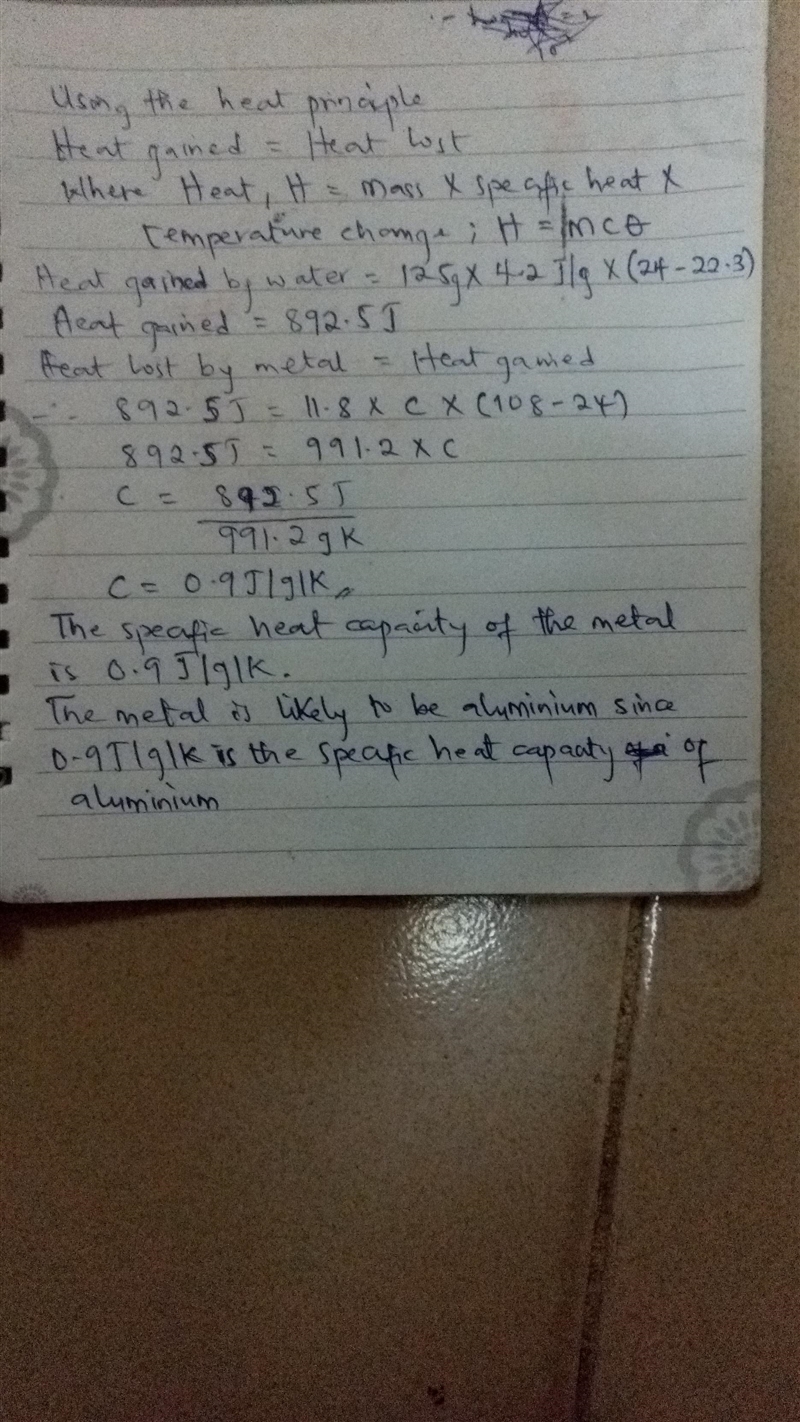 Using the heat principle
Heat gained = Heat lost
Where Heat, H = mass x specific heat x
temperature change; H = mcθ
Heat gained by water = 125g x 4.2 J/g x (24-22.3)
Heat gained = 892.5J
Heat lost by metal = Heat gained
∴ 892.5J = 11.8 x c x (108-24)
892.5J = 991.2 x c
c = 892.5J
991.2gK
c = 0.9J/g/K
The specific heat capacity of the metal
is 0.9 J/g/K.
The metal is likely to be aluminium since
0.9J/g/K is the specific heat capacity of
aluminium